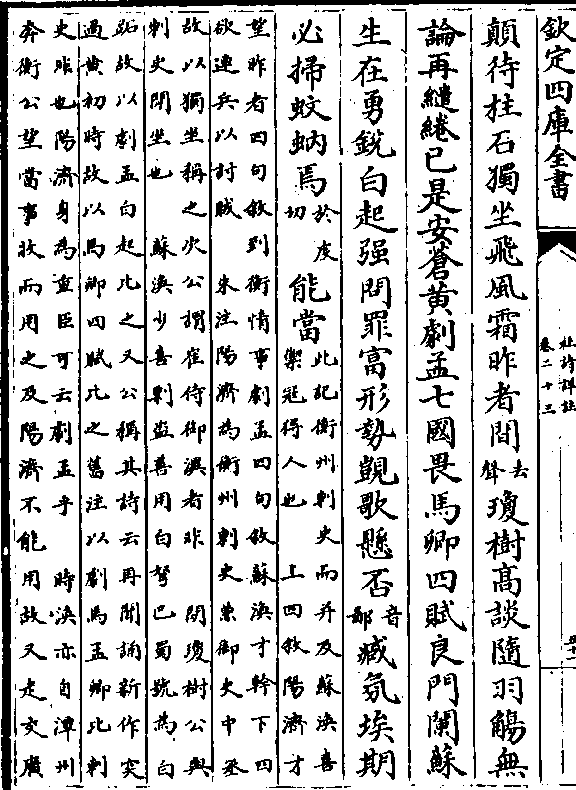 欽定四庫全書
杜詩詳註
卷二十三
顛待柱石獨坐飛風霜昨者間去聲瓊樹髙談隨羽觴無
論再繾綣已是安蒼黄劇孟七國畏馬卿四賦良門闌蘇
生在勇鋭白起强問罪富形勢凱歌懸否音鄙臧氛埃期
必掃蚊蚋焉於虔切能當此記衡州刺史而并及蘇渙喜禦冦得人也 上四叙陽濟才
望昨者四句叙到衡情事劇孟四句叙蘇渙才幹下四
欲連兵以討賊 朱注陽濟為衡州刺史兼御史中丞
故以獨坐稱之次公謂崔侍御渙者非 間瓊樹公與
刺史間坐也 蘇渙少喜剽盗善用白弩巴蜀號為白
跖故以劇孟白起比之又公稱其詩云再聞誦新作突
過黄初時故以馬卿四賦比之舊注以劇馬孟卿比刺
史非也陽濟身為重臣可云劇孟乎 時渙亦自潭州
奔衡公望當事收而用之及陽濟不能用故又走交廣